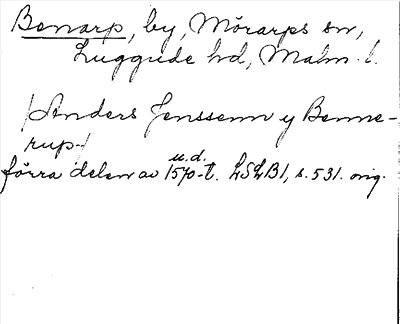 Bonarp, by, Mörarps sn,
Luggude hd, Malm. l.
/Anders Jenssenn y Benne-
rup/
u.d.
förra delen av 1570-t. LSLB1, s. 531. orig.